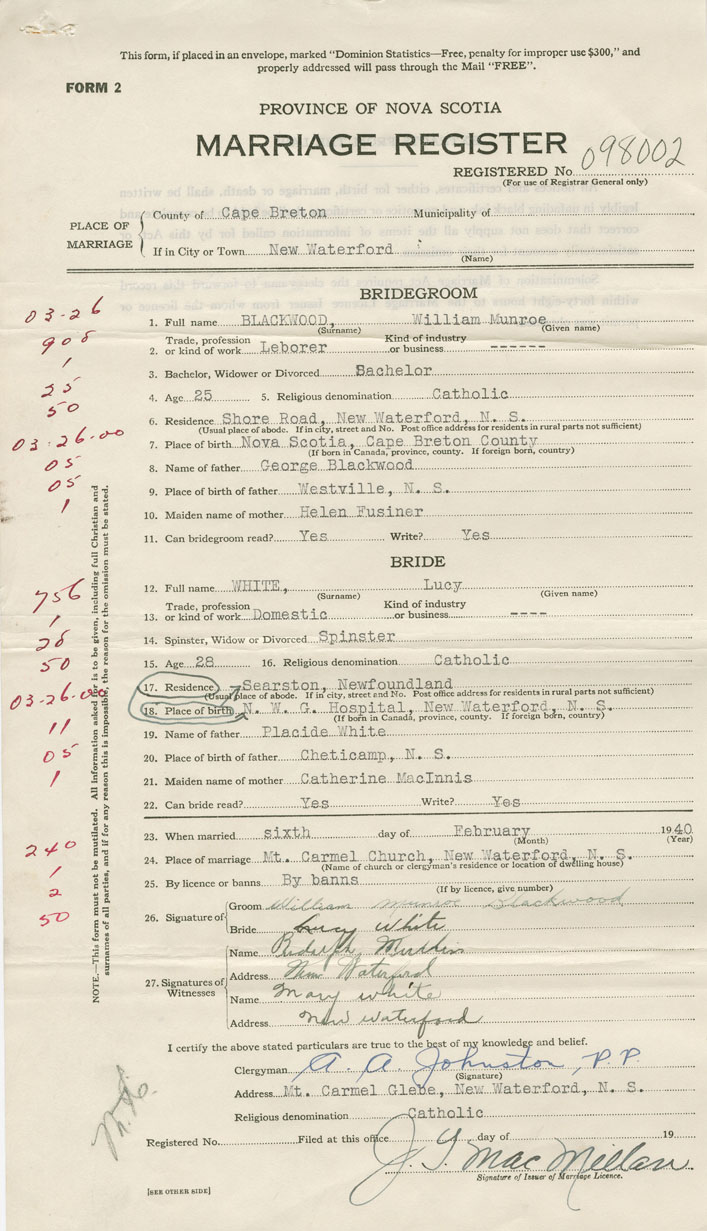 This form, if placed in an envelope, marked "Dominion Statistics—Free, penalty for improper use $300," and
properly addressed will pass through the Mail "FREE".
FORM 2
PROVINCE OF NOVA SCOTIA
MARRIAGE REGISTER
REGISTERED No. 098002
(For use of Registrar General only)
PLACE OF MARRIAGE
County of Cape Breton Municipality of
If in City or Town New Waterford
(Name)
BRIDEGROOM
03-26
1. Full name BLACKWOOD, William Munroe
(Surname) (Given name)
908
2. Trade, profession or kind of work Leborer Kind of industry or business ------
1
3. Bachelor, Widower or Divorced Bachelor
25
4. Age 25 5. Religious denomination Catholic
50
6. Residence Shore Road, New Waterford, N. S.
(Usual place of abode. If in city, street and No. Post office address for residents in rural parts not sufficient)
03-26-00
7. Place of birth Nova Scotia, Cape Breton County
(If born in Canada, province, county. If foreign born, country)
05
8. Name of father George Blackwood
05
9. Place of birth of father Westville, N. S.
1
10. Maiden name of mother Helen Fusiner
11. Can bridegroom read? Yes Write? Yes
BRIDE
756
12. Full name WHITE, Lucy
(Surname) (Given name)
1
13. Trade, profession or kind of work Domestic Kind of industry or business ----
28
14. Spinster, Widow or Divorced Spinster
50
15. Age 28 16. Religious denomination Catholic
03-26-00
17. Residence Searston, Newfoundland
(Usual place of abode. If in city, street and No. Post office address for residents in rural parts not sufficient)
18. Place of birth N. W. G. Hospital, New Waterford, N. S.
(If born in Canada, province, county. If foreign born, country)
11
19. Name of father Placide White
05
20. Place of birth of father Cheticamp, N. S.
1
21. Maiden name of mother Catherine MacInnis
22. Can bride read? Yes Write? Yes
23. When married sixth day of February 1940
(Month) (Year)
240
24. Place of marriage Mt. Carmel Church, New Waterford, N. S.
(Name of church or clergyman's residence or location of dwelling house)
1
25. By licence or banns By banns
(If by licence, give number)
2
50
26. Signature of
Groom William Munroe Blackwood
Bride Lucy White
27. Signatures of Witnesses
Name Rudolph
Address New Waterford
Name Mary White
Address New Waterford
I certify the above stated particulars are true to the best of my knowledge and belief.
Clergyman A. A. Johnston, P.P.
(Signature)
Address Mt. Carmel Glebe, New Waterford, N. S.
Religious denomination Catholic
Registered No. Filed at this office day of 19
J. G. MacMillan
Signature of Issuer of Marriage Licence.
[SEE OTHER SIDE]
NOTE.—This form must not be mutilated. All information asked for is to be given, including full Christian and
surnames of all parties, and if for any reason this is impossible, the reason for the omission must be stated.